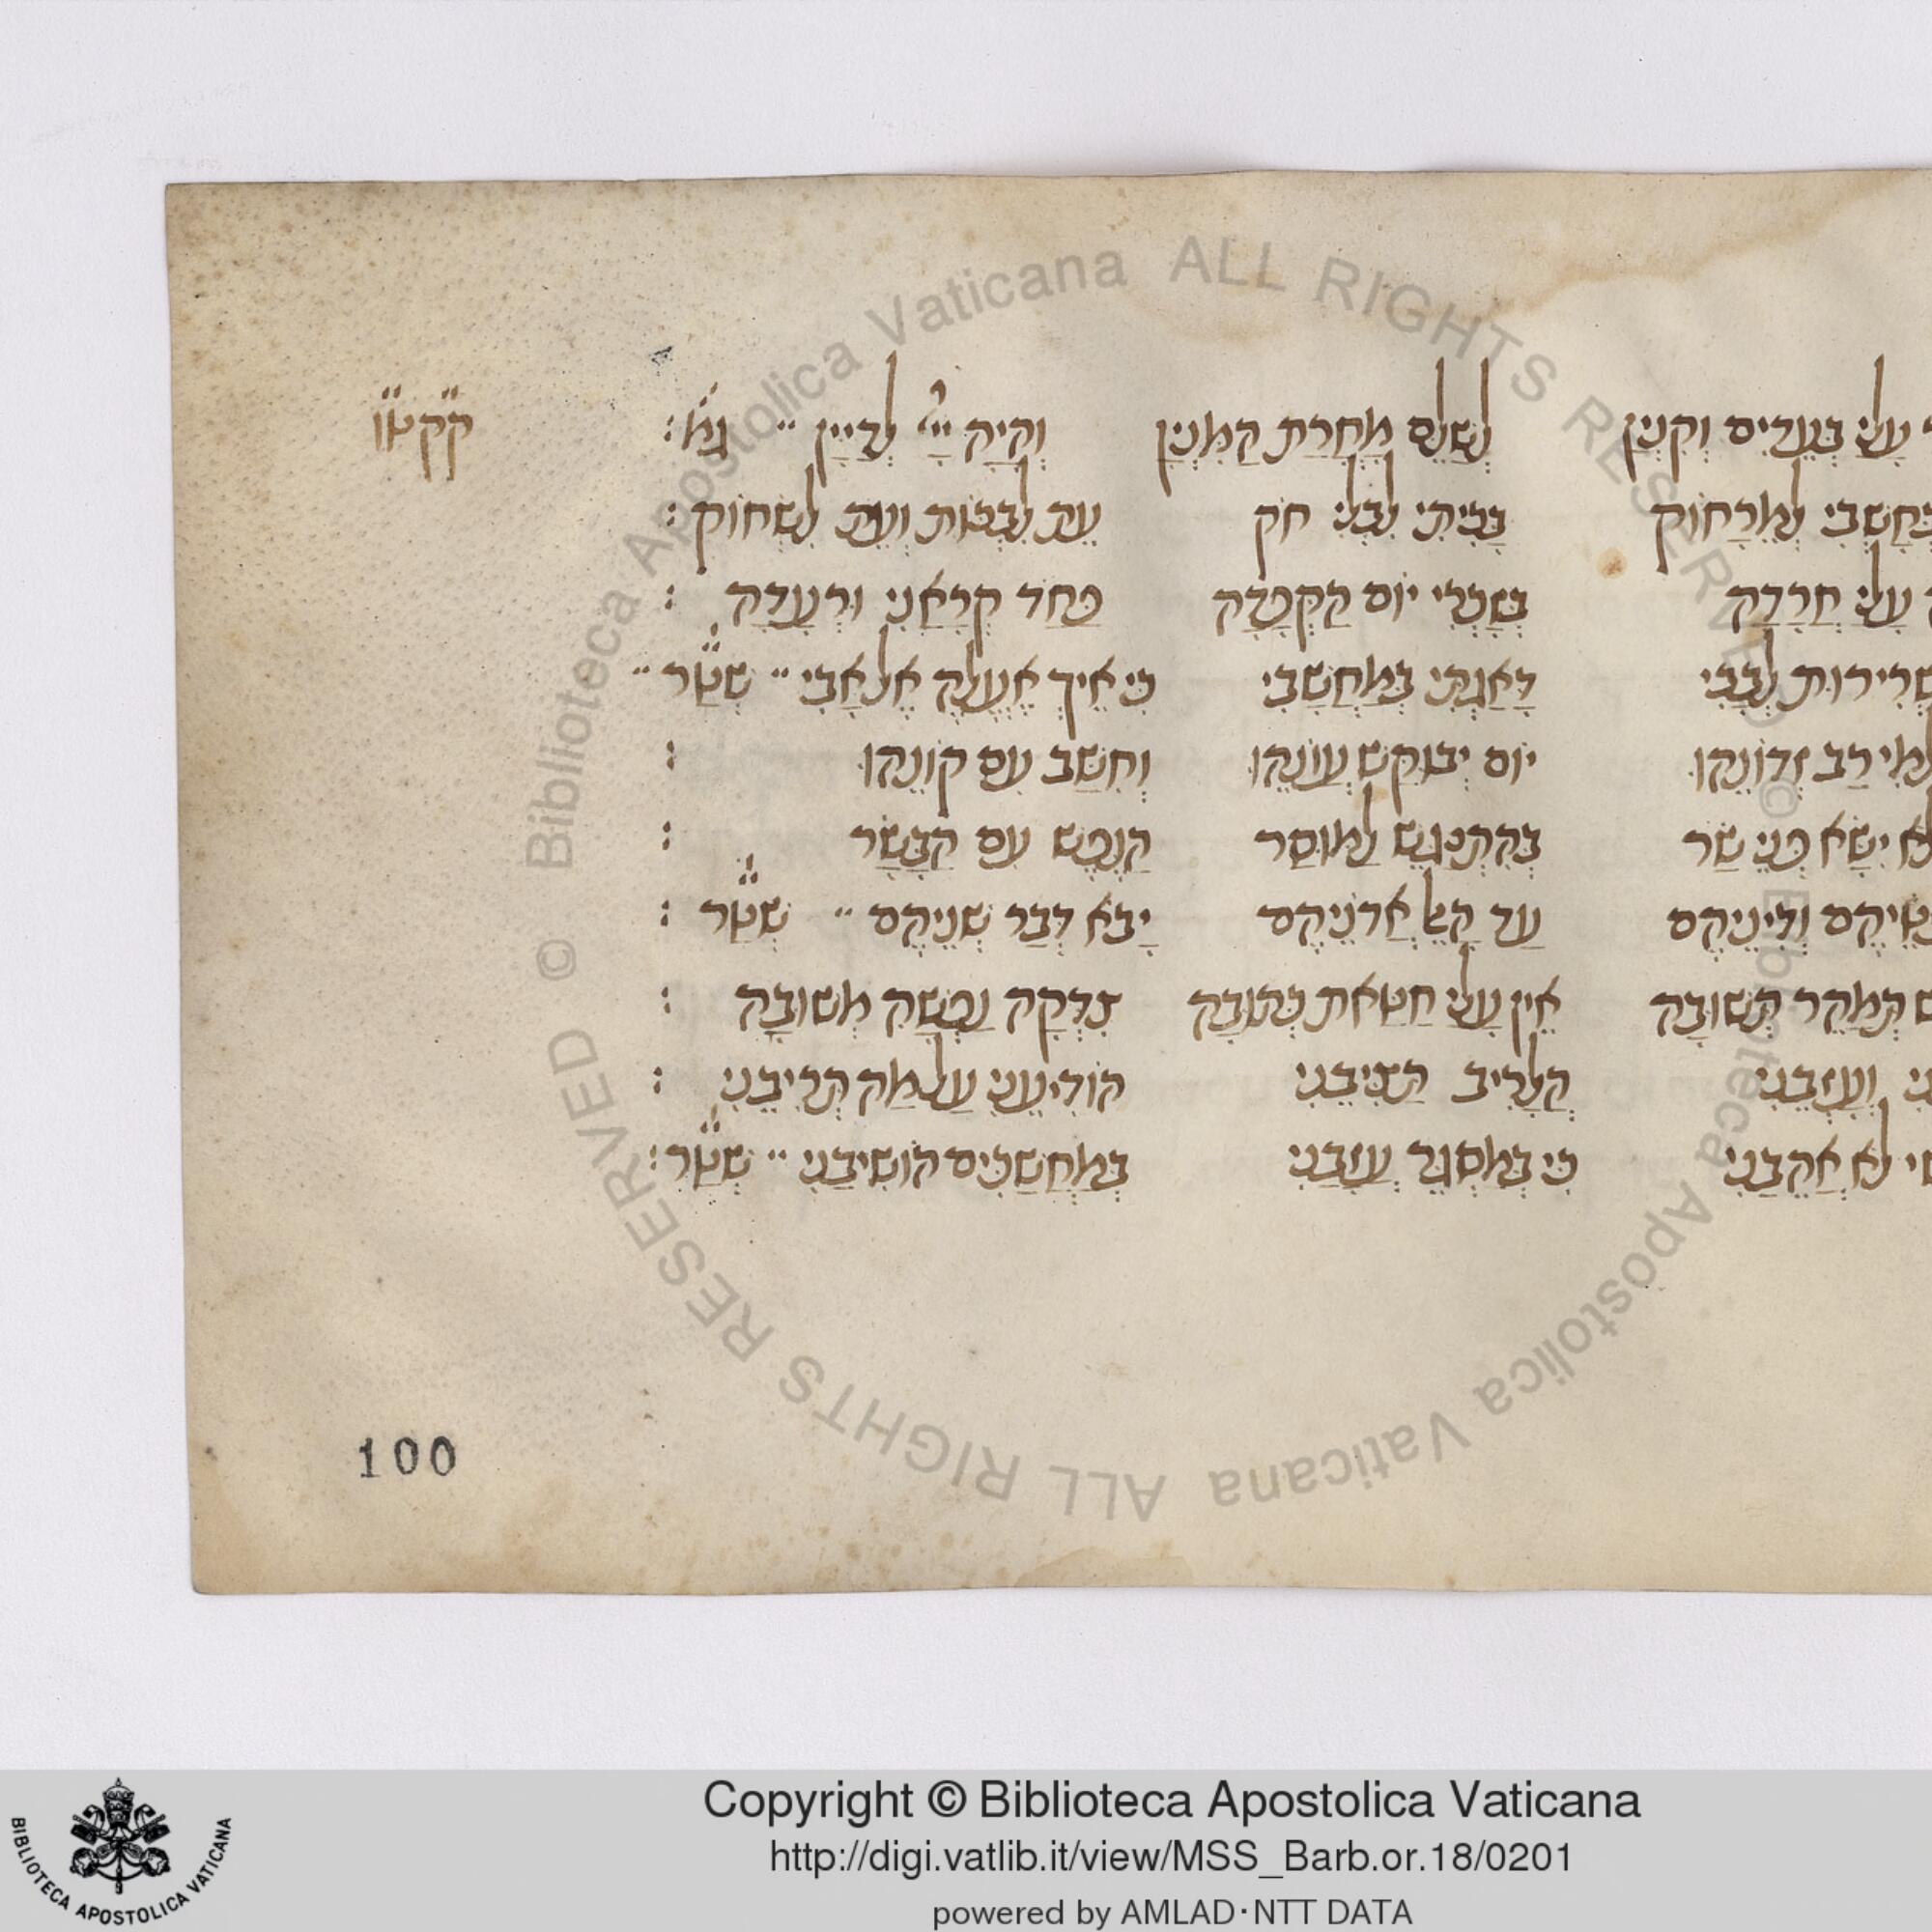 עָלַי בְּעֵדִים וְקִנְיָן לְשַׁלֵּם מָחֳרַת הַמִּנְיָן וְהָיָה יְיָ לְדַיָּן ״ גמ׳ : קקטו
בְּחָשְׁבִי לְמֵרָחוֹק בָּכִיתִי לִבְלִי חֹק עֵת לִבְכּוֹת וְעֵת לִשְׂחוֹק :
עָלַי חֲרָדָה בְּשָׁכְרִי יוֹם הַפְּקֻדָּה פַּחַד קְרָאַנִי וּרְעָדָה :
שְׁרִירוּת לְבָבִי דַּאֲגָתִי בְּמַחֲשָׁבִי כִּי אֵיךְ אֶעֱלֶה אֶל אָבִי ״ שְׁעַר ״
לְמִי רַב זְדוֹנֵהוּ יוֹם יְבוּקַּשׁ עֲוֹנֵהוּ וְחִשַּׁב עִם קוֹנֵהוּ
לֹא יִשָּׂא פְּנֵי שַׂר בְּהִתְנַגֵּשׁ לַמּוּסַר הַנֶּפֶשׁ עִם הַבָּשָׂר :
וְדִינֵיהֶם עַד הָאֵל אֲדֹנֵיהֶם יָבֹא דְּבַר שְׁנֵיהֶם ״ שְׁעַר :
תְּמַהֵר תְּשׁוּבָה אֵין עָלַי חַטָּאת כְּתוּבָה צִדְּקָה נַפְשָׁהּ מְשׁוּבָה :
וְעָזְבֵנִי הֲלָרִיב הַצִּיבֵנִי הוֹדִיעֵנִי עַל מַה תְּרִיבֵנִי :
לֹא אֲהֵבַנִי כִּי בְּמִסְגֵּר עֲזָבַנִי בְּמַחֲשַׁכִּים הוֹשִׁיבַנִי ״ שְׁעַר :
100
Biblioteca Apostolica Vaticana ALL RIGHTS RESERVED ©
Biblioteca Apostolica Vaticana ALL RIGHTS RESERVED ©
BIBLIOTECA APOSTOLICA VATICANA
Copyright © Biblioteca Apostolica Vaticana
http://digi.vatlib.it/view/MSS_Barb.or.18/0201
powered by AMLAD·NTT DATA